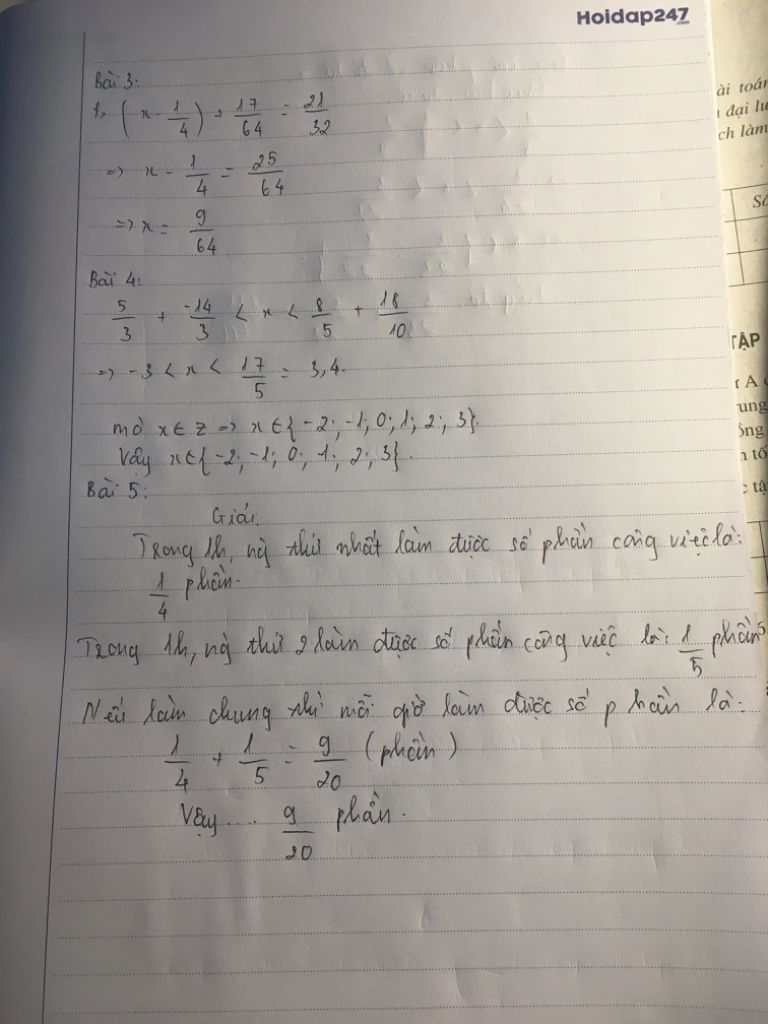 Hoidap247
Bài 3:
1, (x - 1/4) + 17/64 = 21/32
=> x - 1/4 = 25/64
=> x = 9/64
Bài 4:
5/3 + -14/3 < x < 8/5 + 18/10
=> -3 < x < 17/5 = 3,4.
mà x ∈ Z => x ∈ {-2; -1; 0; 1; 2; 3}
Vậy x ∈ {-2; -1; 0; 1; 2; 3}.
Bài 5:
Giải
Trong 1h, ng thứ nhất làm được số phần công việc là:
1/4 phần.
Trong 1h, ng thứ 2 làm được số phần công việc là: 1/5 phần
Nếu làm chung thì mỗi giờ làm được số phần là:
1/4 + 1/5 = 9/20 (phần)
Vậy.... 9/20 phần.
ài toán
đại lư
ch làm
Số
TẬP
r A
ung
ông
tố
c tậ